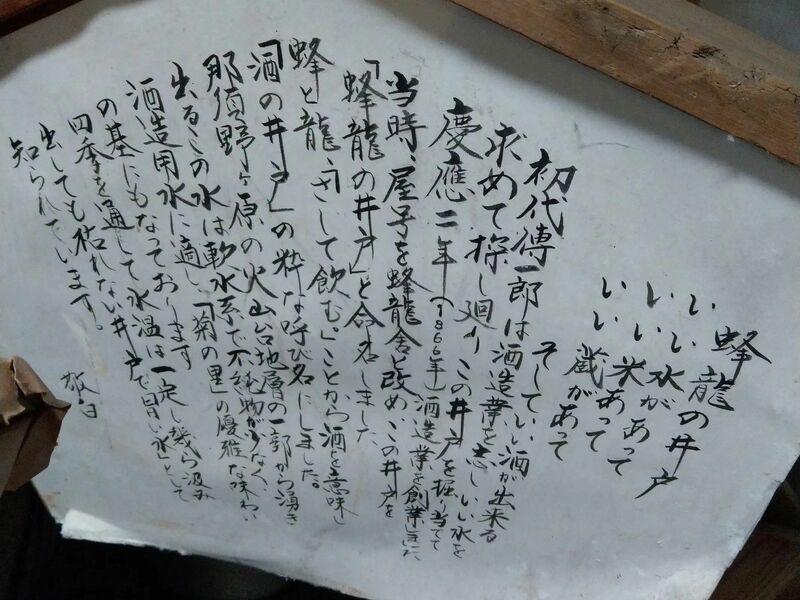 蜂龍の井戸
いい水があって
いい米あって
いい蔵があって
そしていい酒が出来る
初代傳一郎は酒造業を志しいい水を
求めて探し廻りこの井戸を掘り当てて
慶應二年(1866年)酒造業を創業した
当時、屋号を蜂龍舎と改めこの井戸を
「蜂龍の井戸」と命名しました
蜂と龍「さして飲む」ことから酒を意味し
「酒の井戸」の粋な呼び名にしました。
那須野ヶ原の火山台地層の一部から湧き
出るこの水は軟水系で不純物が少なく、
酒造用水に適し、「菊の里」の優雅な味わい
の基にもなっております
四季を通して水温は一定し幾ら汲み
出しても枯れない井戸で旨い水として
知られています。
敬白